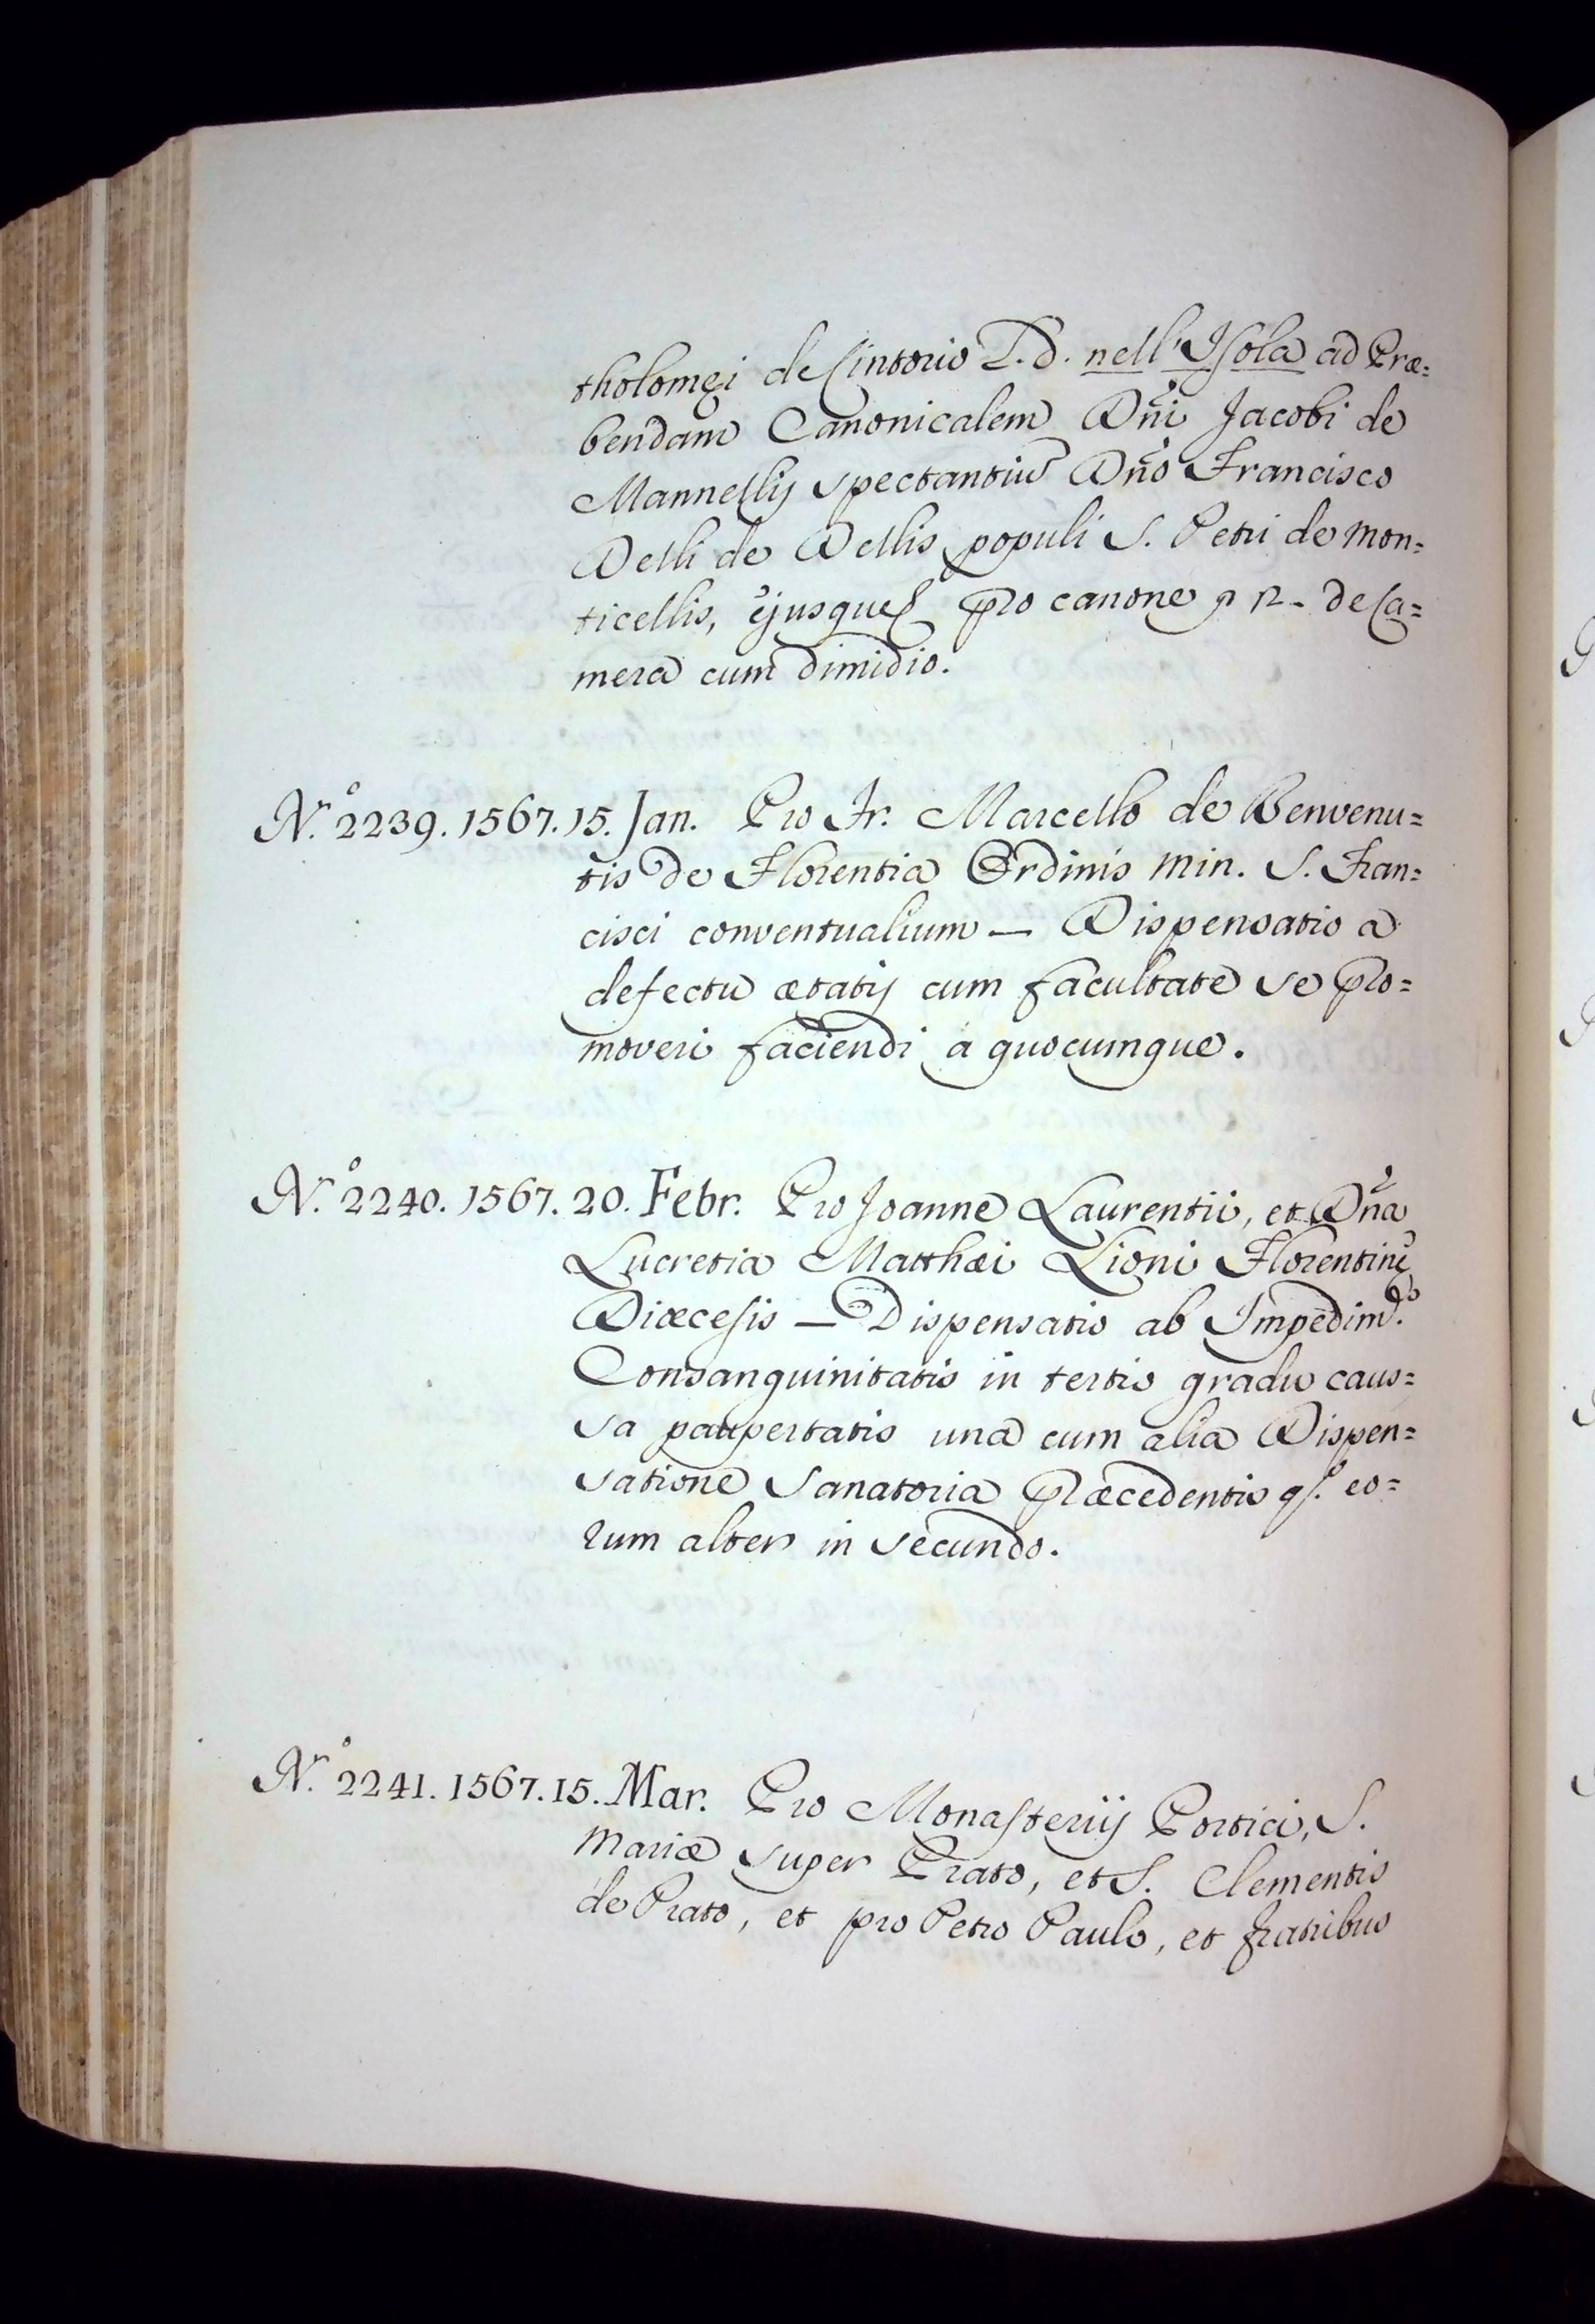 tholomęi de Cintorio L.d. nell'Isola ad Præ=
bendam Canonicalem Dñi Jacobi de
Mannellij spectantiũ Dño Francisco
Delli de Dellis populi S. Petri de Mon=
ticellis, ejusque pro canone de Ca=
mera cum dimidio.
N.º 2239. 1567. 15. Jan. Pro Fr. Marcello de Benvenu=
tis de Florentia Ordinis Min. S. Fran=
cisci conventualium — Dispensatio a
defectu ætatij cum facultate se pro=
moveri faciendi a quocumque.
N.º 2240. 1567. 20. Febr. Pro Joanne Laurentii, et Dña
Lucretia Matthæi Lioni Florentinę
Diæcesis — Dispensatio ab Impedim.to
Consanguinitatis in tertio gradu caus=
sa paupertatis una cum alia Dispen=
satione Sanatoria præcedentis qd. eo=
rum alter in secundo.
N.º 2241. 1567. 15. Mar. Pro Monasterijs Portici, S.
Mariæ super Prato, et S. Clementis
de Prato, et pro Petro Paulo, et fratribus